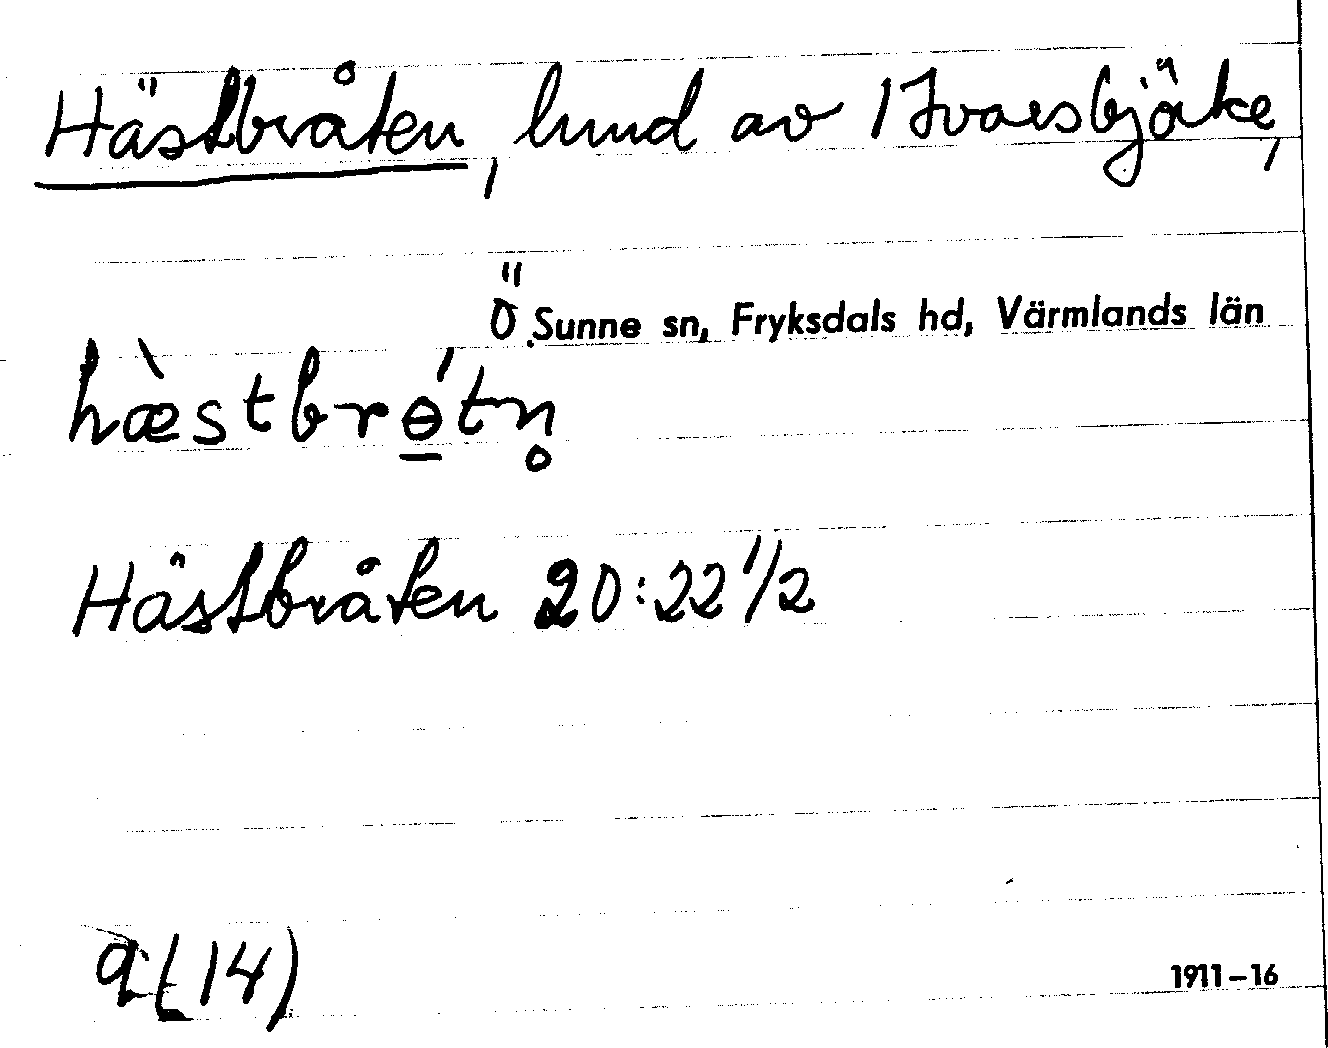 Hästbråten, lund av 1 Ivarsbjörke,
Ö. Sunne sn, Fryksdals hd, Värmlands län
hæ̀stbrɵ́tn̥
Hästbråten 20:22 1/2
9(14)
1911–16